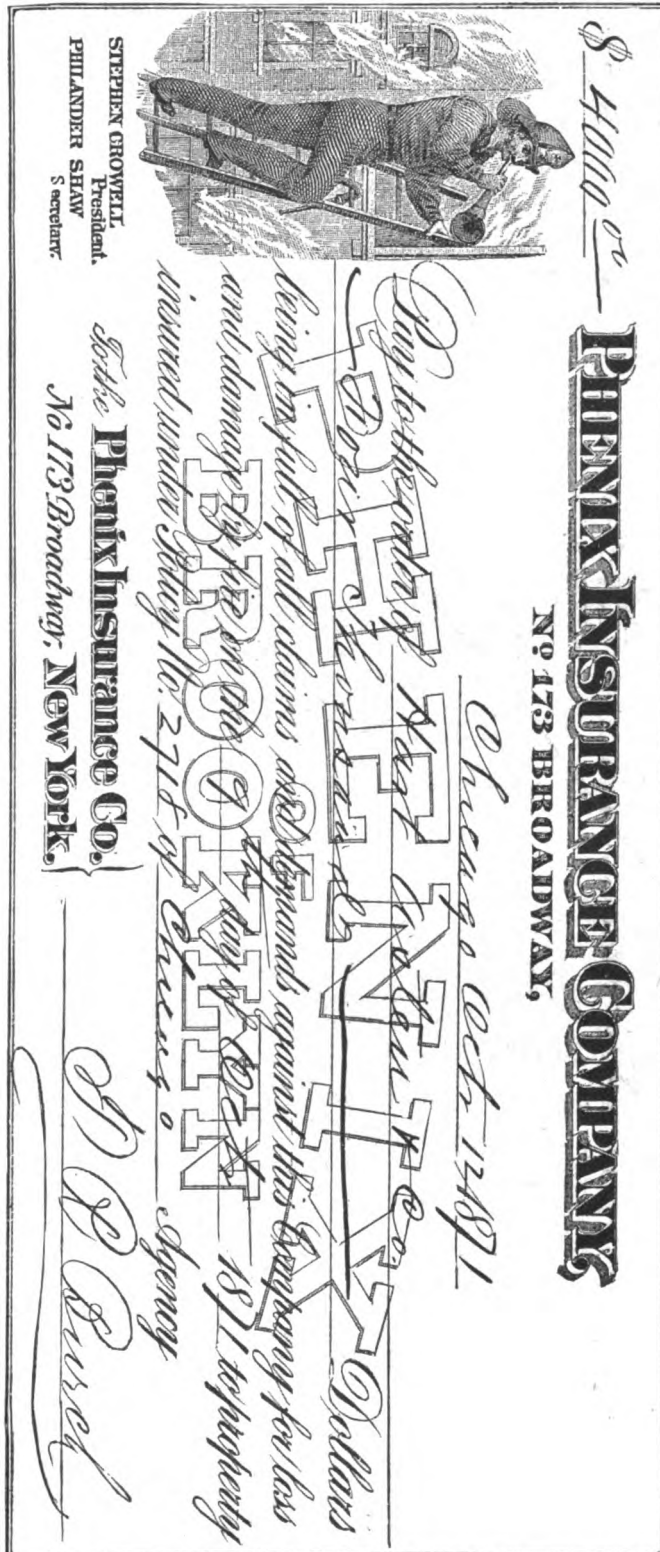 $ 4000 00
PHENIX INSURANCE COMPANY,
No. 173 BROADWAY,
Chicago Oct 12 1871
Pay to the order of Hart Asten & Co.
Four Thousand Dollars
being in full of all claims and demands against this Company for loss
and damage by fire on the 9 th day of Oct 1871 to property
insured under Policy No. 2715 of Chicago Agency
PHENIX
OF
BROOKLYN
STEPHEN CROWELL
President.
PHILANDER SHAW
Secretary.
To the Phenix Insurance Co.
No. 173 Broadway, New York.
Burch